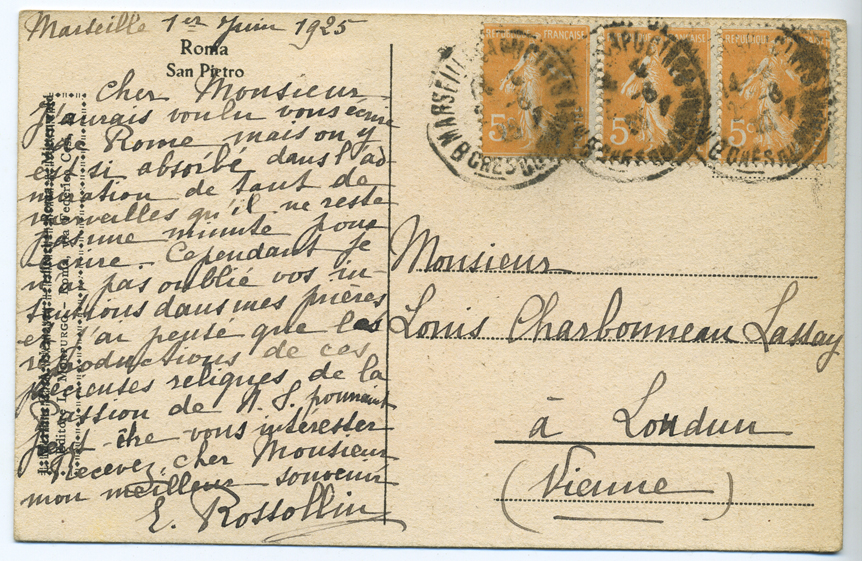 Marseille 1er Juin 1925
Roma
San Pietro
Cher Monsieur
J'aurais voulu vous écrire
de Rome mais on y
est si absorbé dans l'ad-
miration de tant de
merveilles qu'il ne reste
pas une minute pour
écrire. Cependant je
n'ai pas oublié vos in-
tentions dans mes prières
et j'ai pensé que les
reproductions de ces
précieuses reliques de la
Passion de N. S. pourraient
peut-être vous intéresser
Recevez, cher Monsieur
mon meilleur souvenir
E. Rossollin
Roma, Via Federico Cesi
RÉPUBLIQUE FRANÇAISE
5c
5c
5c
MARSEILLE CAPUCINES
Bches du
Monsieur
Louis Charbonneau Lassay
à Loudun
(Vienne)